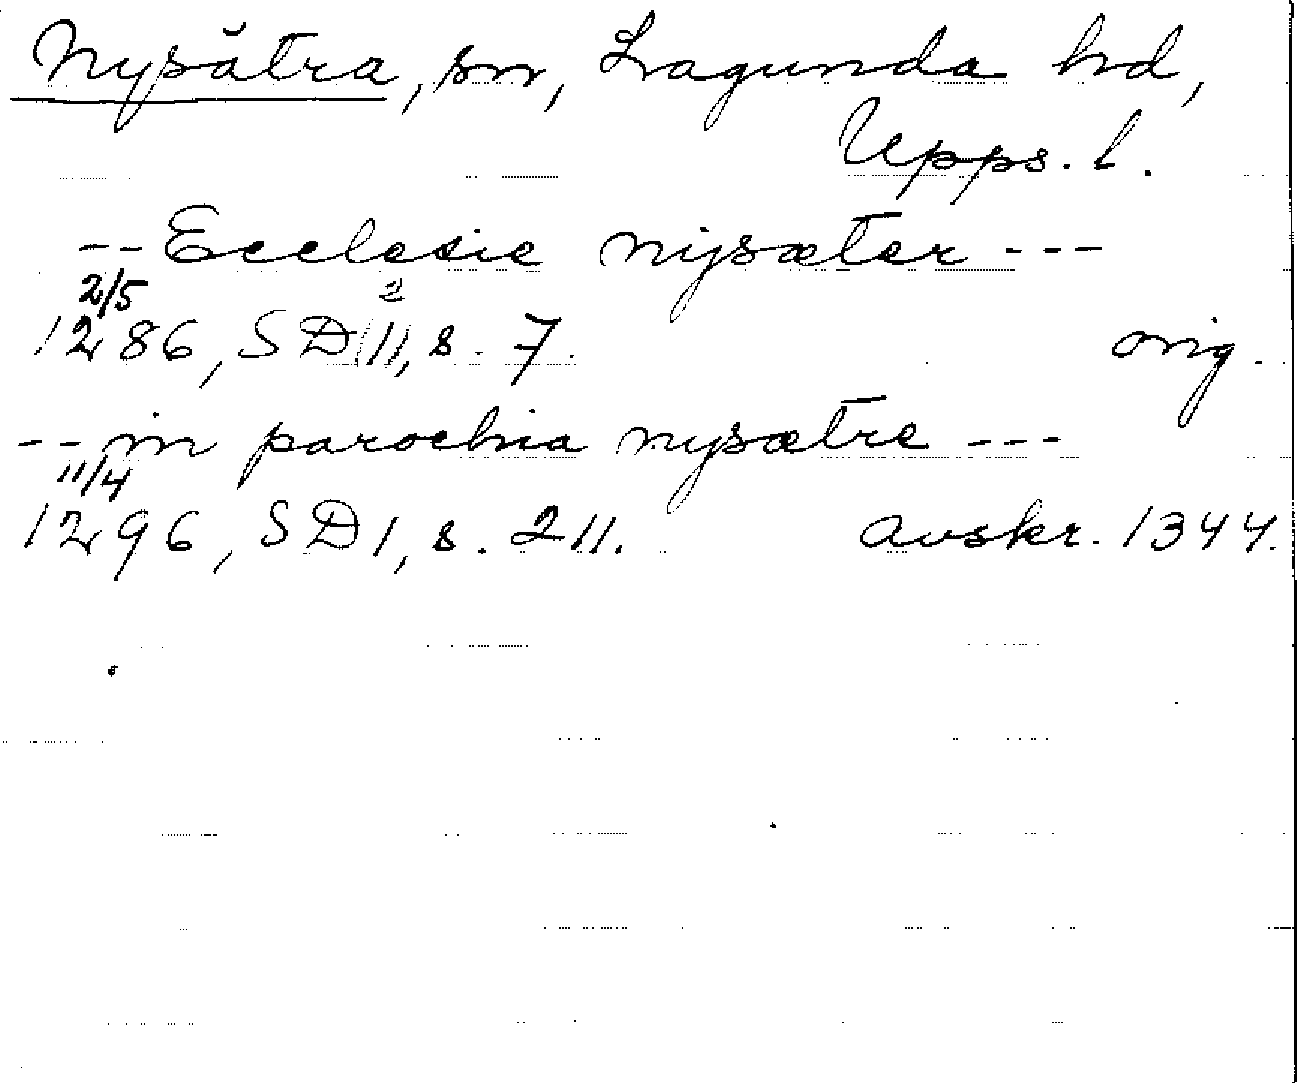 Nysätra, sn, Lagunda hd,
Upps. l.
-- Ecclesie nysæter ---
2/5 2
1286, SD II, s. 7. orig.
-- in parochia nysætre ---
11/4
1296, SD 1, s. 211. avskr. 1344.